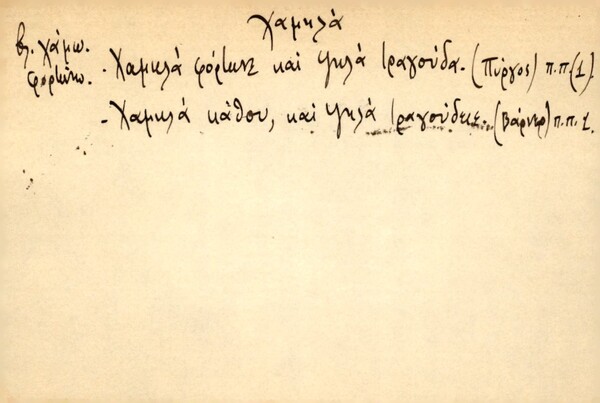 Χαμηλά
βλ. χάμω.
φορτώνω.
- Χαμηλά φόρτωνε καί ψηλά τραγούδα. (Πύργος) π.π.(1).
- Χαμηλά κάθου, καί ψηλά τραγούδειε. (Βάρνερ) π.π. 1.